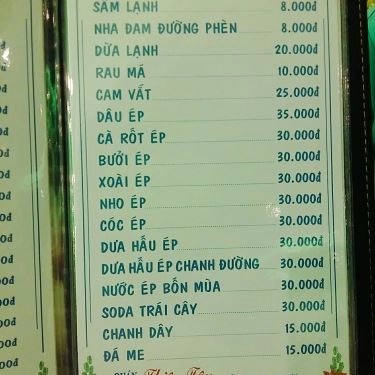 SÂM LẠNH 8.000đ
NHA ĐAM ĐƯỜNG PHÈN 8.000đ
DỪA LẠNH 20.000đ
RAU MÁ 10.000đ
CAM VẮT 25.000đ
DÂU ÉP 35.000đ
CÀ RỐT ÉP 30.000đ
BƯỞI ÉP 30.000đ
XOÀI ÉP 30.000đ
NHO ÉP 30.000đ
CÓC ÉP 30.000đ
DƯA HẤU ÉP 30.000đ
DƯA HẤU ÉP CHANH ĐƯỜNG 30.000đ
NƯỚC ÉP BỐN MÙA 30.000đ
SODA TRÁI CÂY 30.000đ
CHANH DÂY 15.000đ
ĐÁ ME 15.000đ